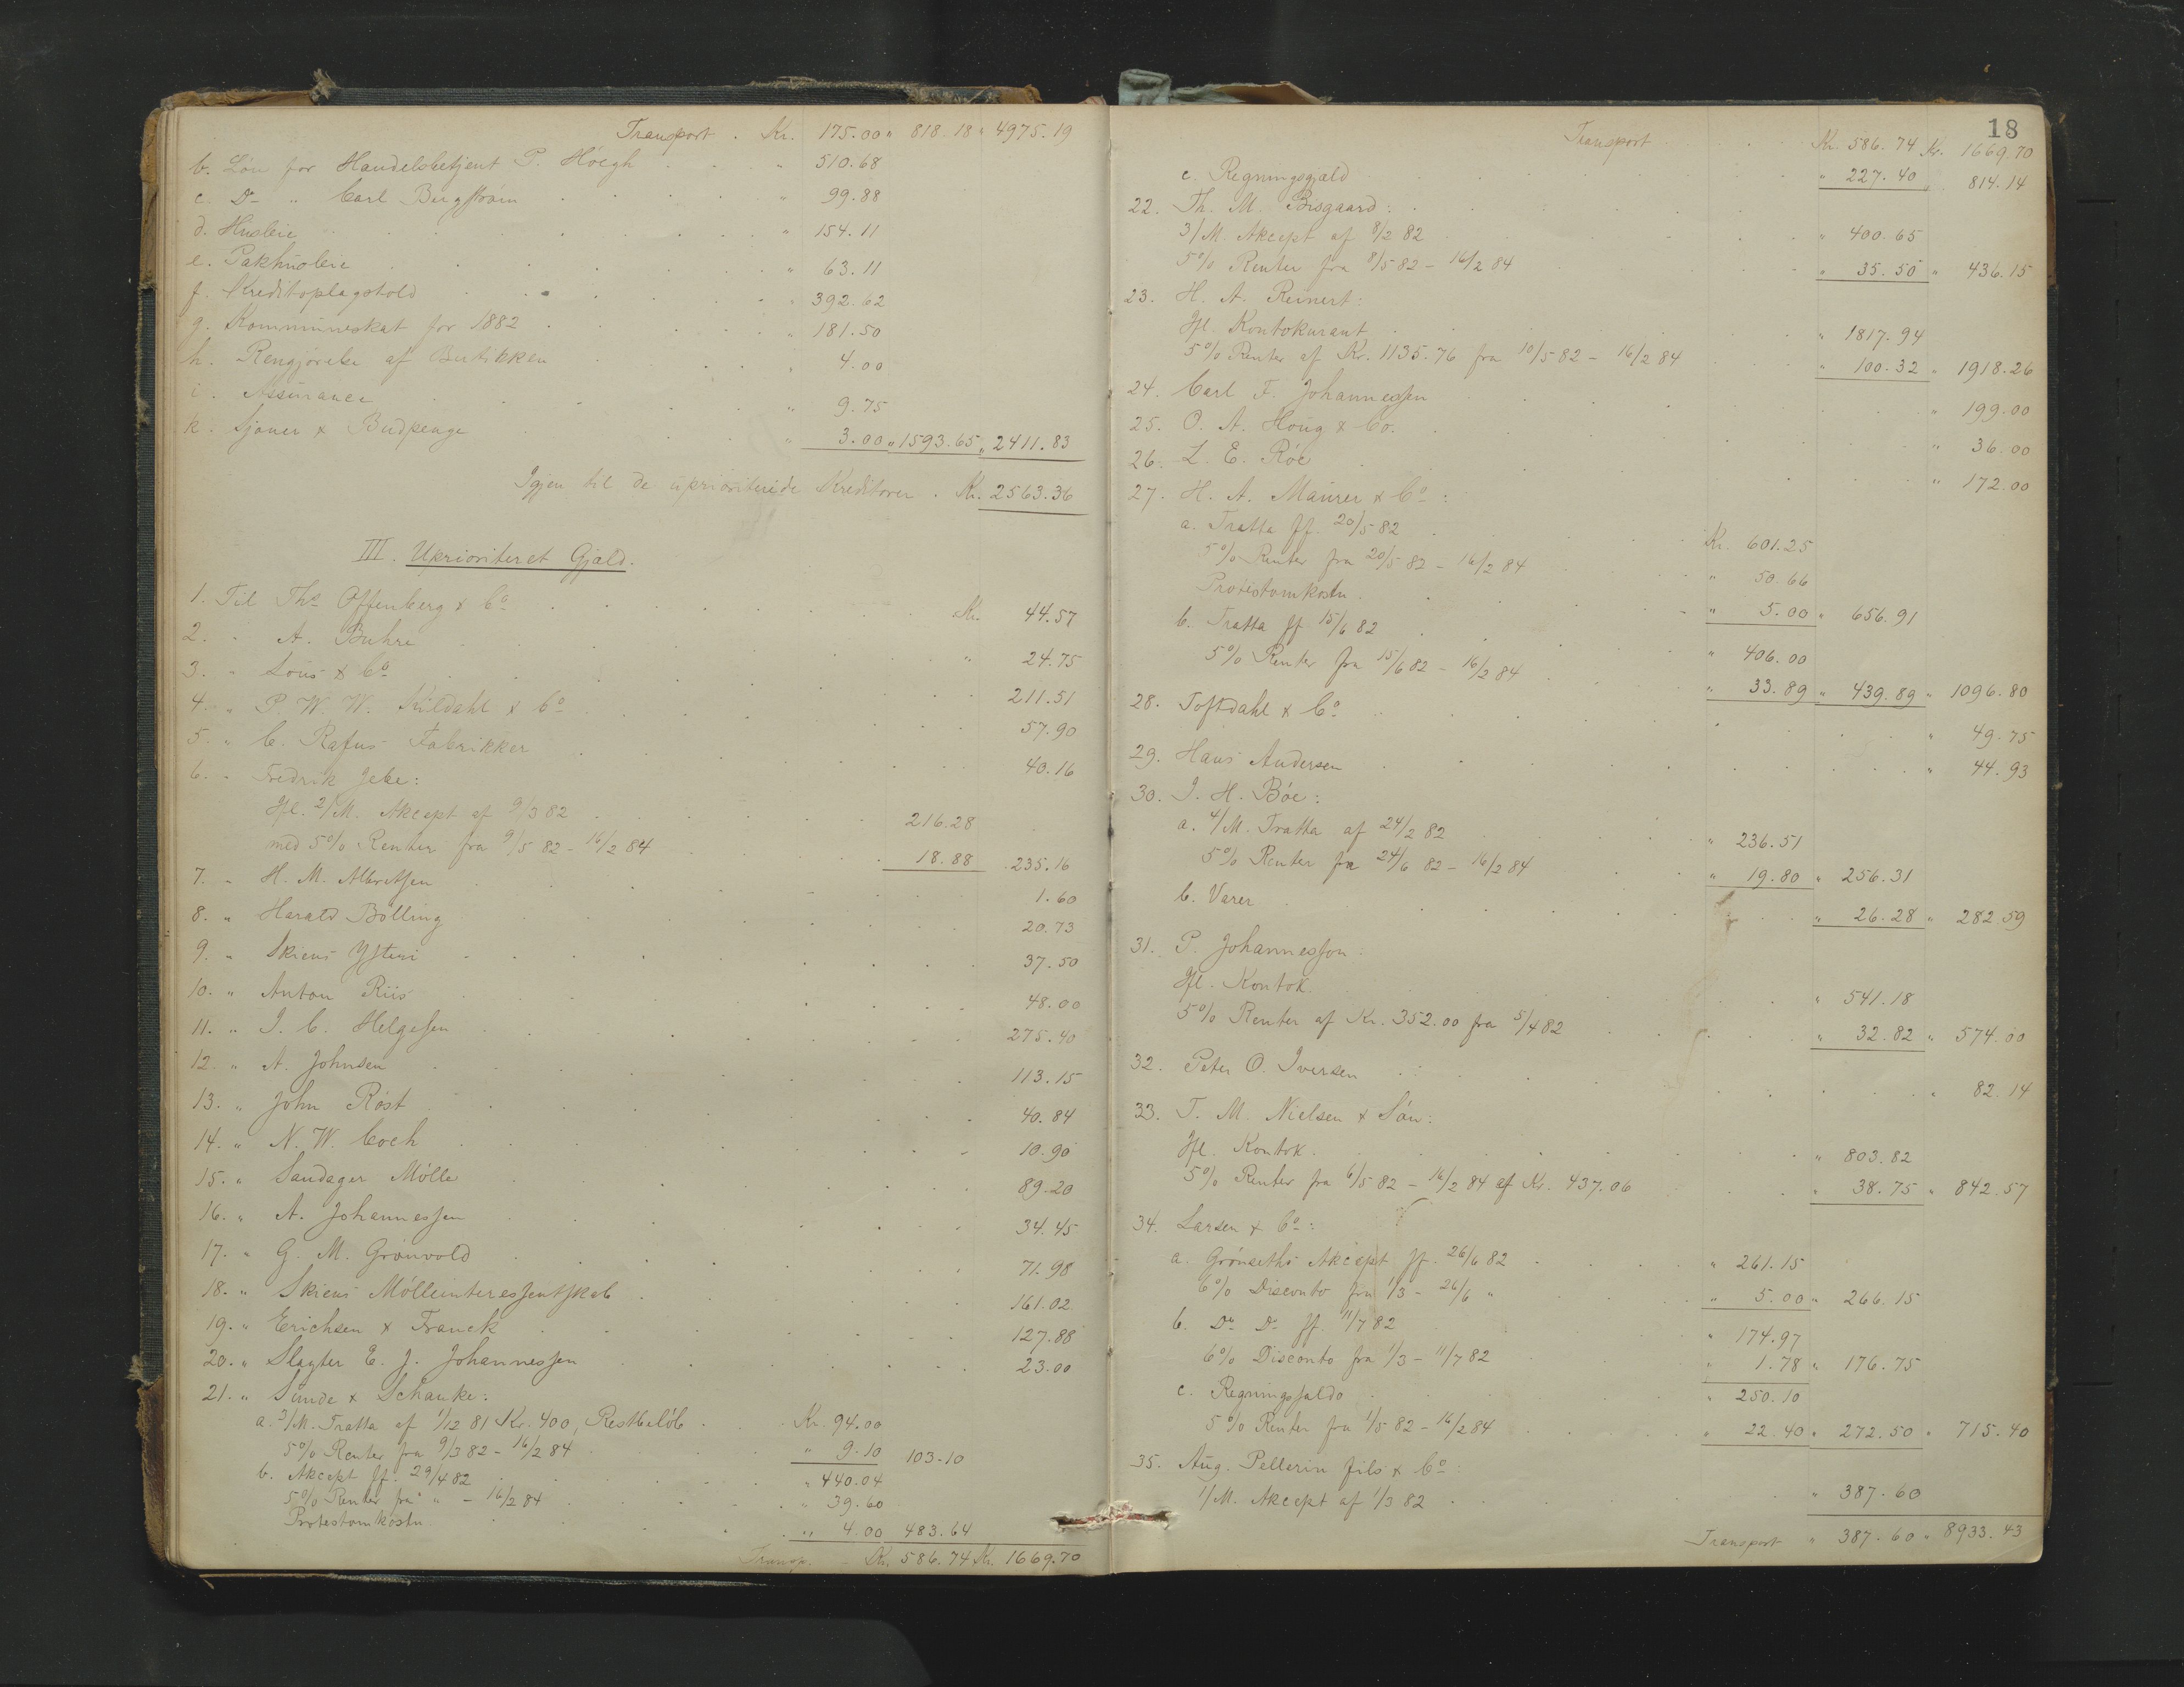 Transport . Kr. 175.00 " 818.18 " 4975.19
b. Løn for Handelsbetjent P. Höegh . . . " 510.68
c. Do " Carl Bergström . . . " 99.88
d. Husleie . . . " 154.11
e. Pakhusleie . . . " 63.11
f. Kreditoplagstold . . . " 392.62
g. Kommuneskat for 1882 . . . " 181.50
h. Rengjørelse af Butikken . . . " 4.00
i. Assurance . . . " 9.75
k. Sjauer & Budpenge . . . " 3.00 " 1593.65 " 2411.83
Igjen til de uprioriterede Kreditorer . Kr. 2563.36
III. Uprioriteret Gjæld.
1. Til Ths Offenberg & Co . . . Kr. 44.57
2. " A. Buhre . . . " 24.75
3. " Lous & Co . . . 211.51
4. " P. W. W. Kildahl & Co . . . 57.90
5. " C. Rafus Fabrikker . . . 40.16
6. " Fredrik Jebe:
Ifl. 2/M. Akcept af 9/3 82 . . . 216.28
med 5% Renter fra 9/5 82 - 16/2 84 . . . 18.88 235.16
7. " H. M. Albretsen . . . 1.60
8. " Harald Bölling . . . 20.73
9. " Skiens Ysteri . . . 37.50
10. " Anton Riis . . . 48.00
11. " J. C. Helgesen . . . 275.40
12. " A. Johnsen . . . 113.15
13. " John Röst . . . 40.84
14. " N. W. Coch . . . 10.90
15. " Sandager Mölle . . . 89.20
16. " A. Johannessen . . . 34.45
17. " G. M. Grönvold . . . 71.98
18. " Skiens Mölleinteressentskab . . . 161.02
19. " Erichsen & Franck . . . 127.88
20. " Slagter E. J. Johannessen . . . 23.00
21. " Sunde & Schanke:
a. 3/M. Tratta af 1/12 81 Kr. 400, Restbeløb . . Kr. 94.00
5% Renter fra 9/3 82 - 16/2 84 . . . " 9.10 103.10
b. Akcept ff. 29/4 82 . . . " 440.04
5% Renter fra " " - 16/2 84 . . . " 39.60
Protestomkostn. . . . " 4.00 483.64
Transp. - Kr. 586.74 Kr. 1669.70
18
Transport . . . Kr. 586.74 Kr. 1669.70
c. Regningsgjæld . . . " 227.40 " 814.14
22. Th. M. Bisgaard:
3/M. Akcept af 8/2 82 . . . " 400.65
5% Renter fra 8/5 82 - 16/2 84 . . . " 35.50 " 436.15
23. H. A. Reinert:
Ifl. Kontokurant . . . " 1817.94
5% Renter af Kr. 1135.76 fra 10/5 82 - 16/2 84 . . . " 100.32 " 1918.26
24. Carl F. Johannessen . . . " 199.00
25. O. A. Houg & Co. . . . " 36.00
26. L. E. Röe . . . " 172.00
27. H. A. Maurer & Co:
a. Tratta ff. 20/5 82 . . . Kr. 601.25
5% Renter fra 20/5 82 - 16/2 84 . . . " 50.66
Protestomkostn. . . . " 5.00 " 656.91
b. Tratta ff 15/6 82 . . . " 406.00
5% Renter fra 15/6 82 - 16/2 84 . . . " 33.89 " 439.89 " 1096.80
28. Toftdahl & Co . . . " 49.75
29. Hans Andersen . . . " 44.93
30. J. H. Böe:
a. 4/M. Tratta af 24/2 82 . . . " 236.51
5% Renter fra 24/6 82 - 16/2 84 . . . " 19.80 " 256.31
b. Varer . . . " 26.28 " 282.59
31. P. Johannesson:
Ifl. Kontok. . . . " 541.18
5% Renter af Kr. 352.00 fra 5/4 82 . . . " 32.82 " 574.00
32. Peter O. Iversen . . . " 82.14
33. T. M. Nielsen & Sön:
Ifl. Kontok. . . . " 803.82
5% Renter fra 6/5 82 - 16/2 84 af Kr. 437.06 . . . " 38.75 " 842.57
34. Larsen & Co:
a. Grönseths Akcept ff. 26/6 82 . . . " 261.15
6% Disconto fra 1/3 - 26/6 " . . . " 5.00 " 266.15
b. Do Do ff. 11/7 82 . . . " 174.97
6% Disconto fra 1/3 - 11/7 82 . . . " 1.78 " 176.75
c. Regningssaldo . . . " 250.10
5% Renter fra 1/5 82 - 16/2 84 . . . " 22.40 " 272.50 " 715.40
35. Aug. Pellerin fils & Co:
1/M. Akcept af 1/3 82 . . . " 387.60
Transport " 387.60 " 8933.43